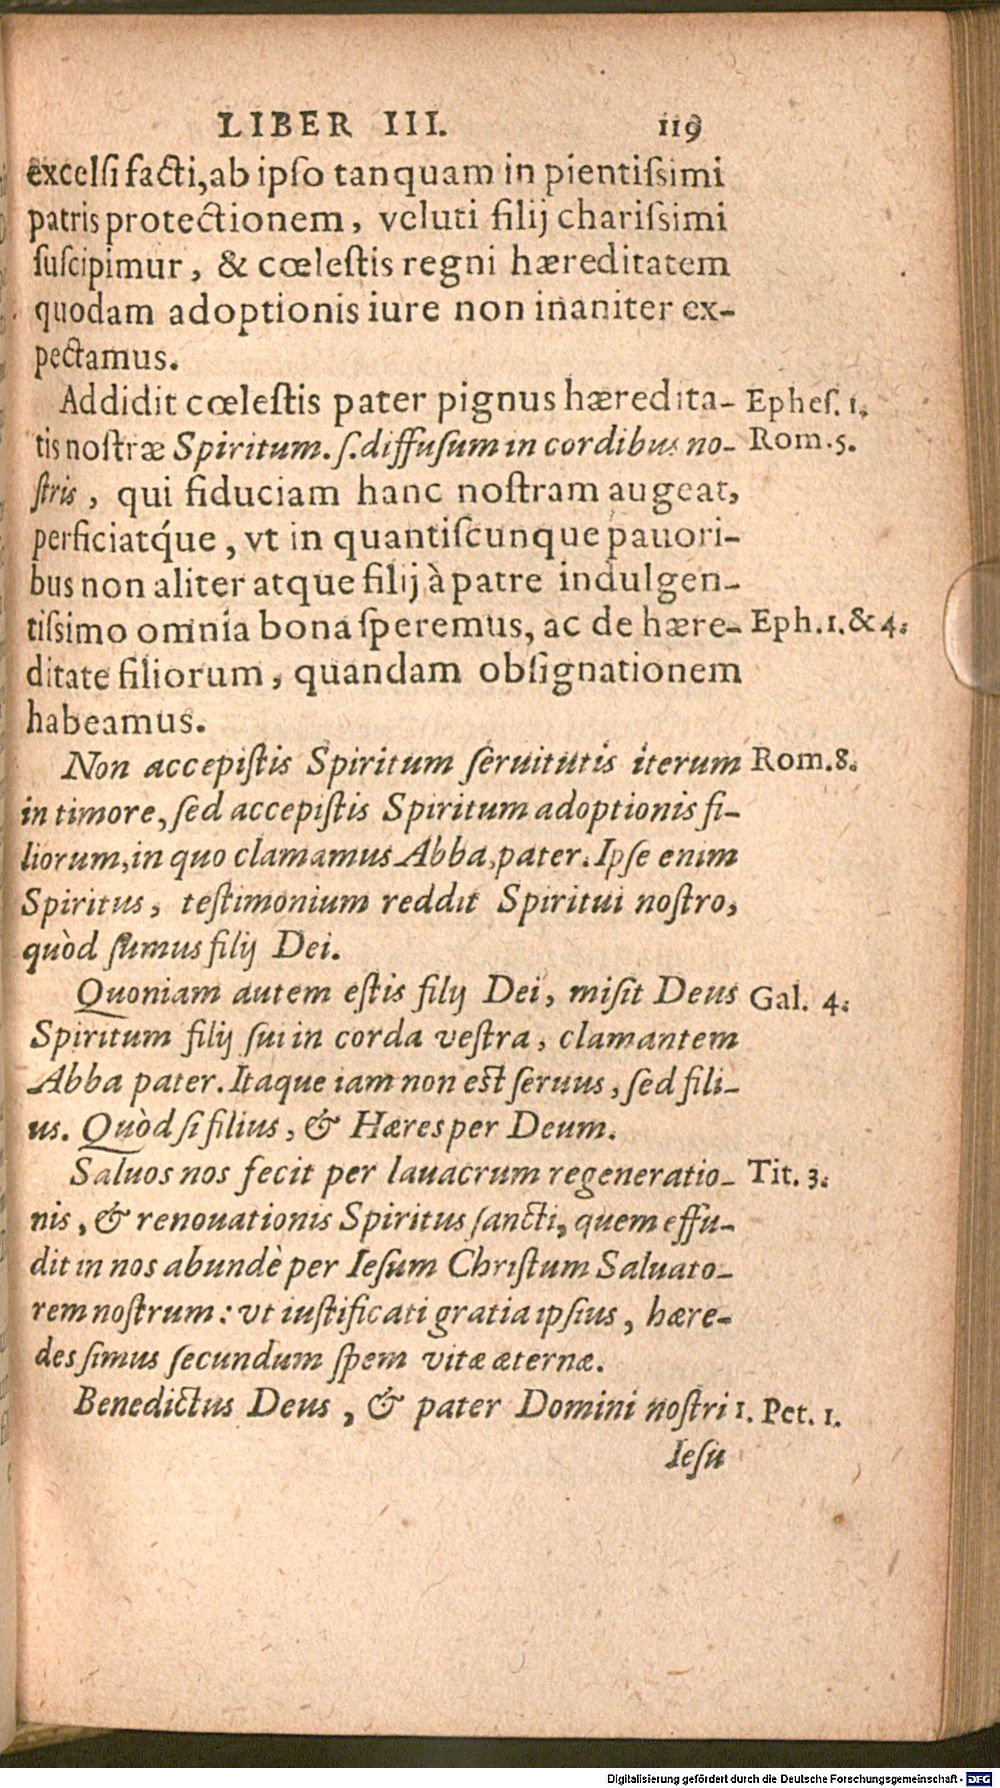 LIBER III. 119
excelsi facti, ab ipso tanquam in pientissimi
patris protectionem, veluti filij charissimi
suscipimur, & cœlestis regni hæreditatem
quodam adoptionis iure non inaniter ex-
pectamus.
Addidit cœlestis pater pignus hæredita- Ephes. 1.
tis nostræ Spiritum. s. diffusum in cordibus no- Rom. 5.
stris, qui fiduciam hanc nostram augeat,
perficiatq́ue, vt in quantiscunque pauori-
bus non aliter atque filij à patre indulgen-
tissimo omnia bona speremus, ac de hære- Eph. 1. & 4.
ditate filiorum, quandam obsignationem
habeamus.
Non accepistis Spiritum seruitutis iterum Rom. 8.
in timore, sed accepistis Spiritum adoptionis fi-
liorum, in quo clamamus Abba, pater. Ipse enim
Spiritus, testimonium reddit Spiritui nostro,
quòd sumus filij Dei.
Quoniam autem estis filij Dei, misit Deus Gal. 4.
Spiritum filij sui in corda vestra, clamantem
Abba pater. Itaque iam non est seruus, sed fili-
us. Quòd si filius, & Hæres per Deum.
Saluos nos fecit per lauacrum regeneratio- Tit. 3.
nis, & renouationis Spiritus sancti, quem effu-
dit in nos abundè per Iesum Christum Saluato-
rem nostrum: vt iustificati gratia ipsius, hære-
des simus secundum spem vitæ æternæ.
Benedictus Deus, & pater Domini nostri 1. Pet. 1.
Iesu
Digitalisierung gefördert durch die Deutsche Forschungsgemeinschaft - DFG